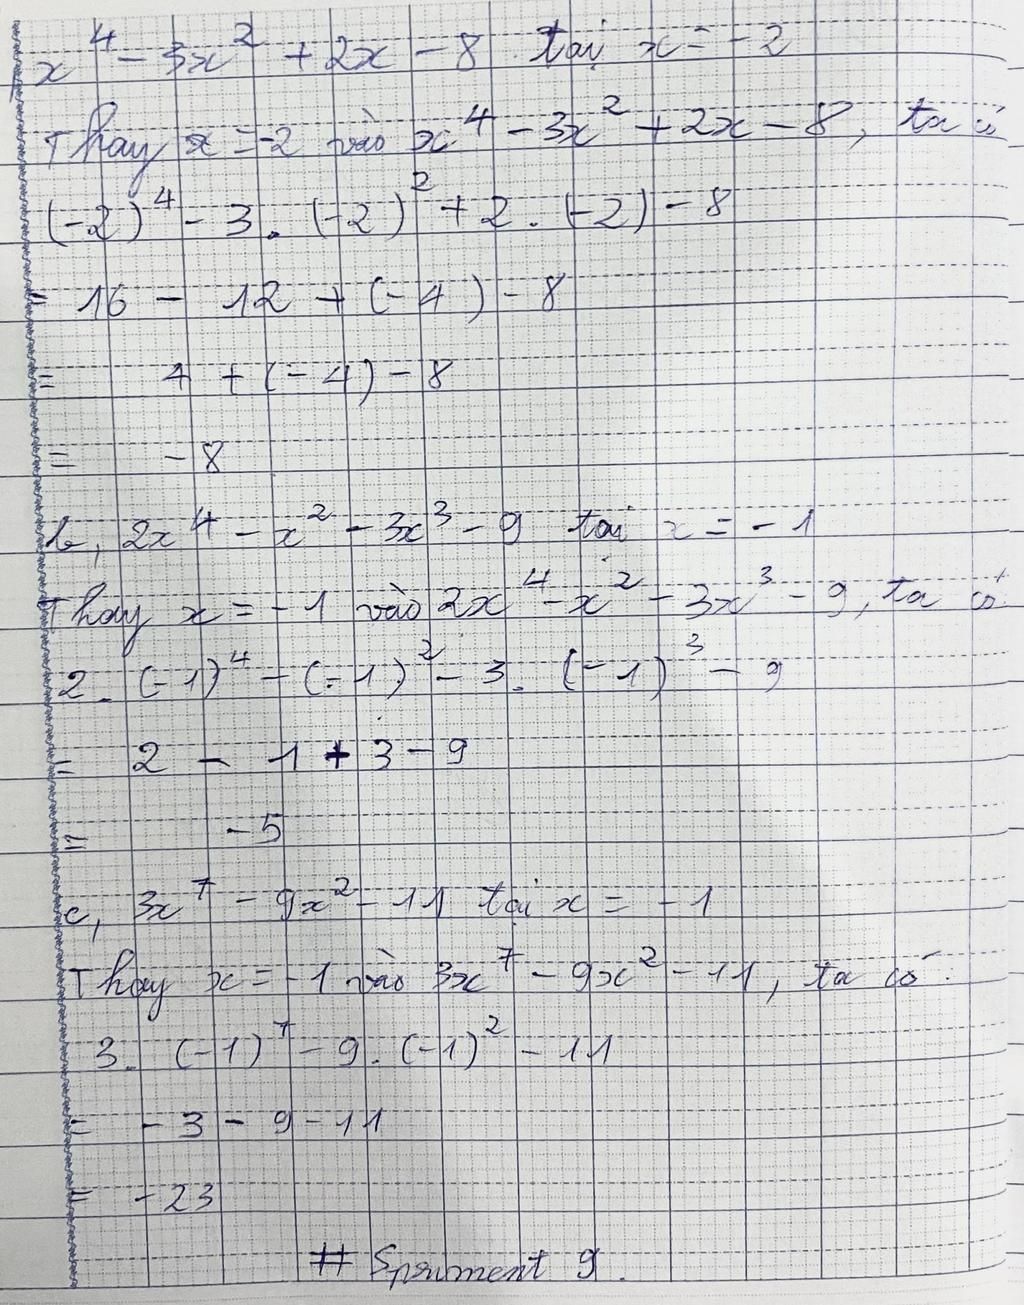 x⁴ - 3x² + 2x - 8 tại x = -2
Thay x = -2 vào x⁴ - 3x² + 2x - 8, ta có
(-2)⁴ - 3. (-2)² + 2. (-2) - 8
= 16 - 12 + (-4) - 8
= 4 + (-4) - 8
= -8
b, 2x⁴ - x² - 3x³ - 9 tại x = -1
Thay x = -1 vào 2x⁴ - x² - 3x³ - 9, ta có:
2. (-1)⁴ - (-1)² - 3. (-1)³ - 9
= 2 - 1 + 3 - 9
= -5
c, 3x⁷ - 9x² - 11 tại x = -1
Thay x = -1 vào 3x⁷ - 9x² - 11, ta có:
3. (-1)⁷ - 9. (-1)² - 11
= -3 - 9 - 11
= -23
# 9.